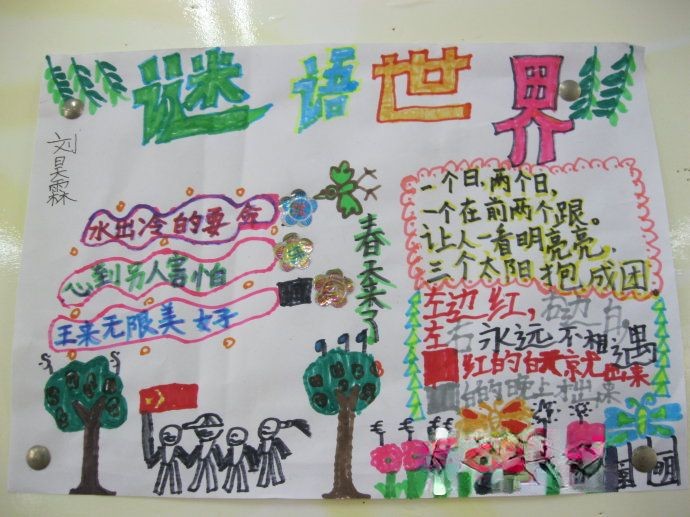 谜语世界
刘昊霖
水出冷的要命
心到另人害怕
王来无限美好
春天来了
一个日,两个日,
一个在前两个跟。
让人一看明亮亮,
三个太阳抱成团。
左边红,右边白,
左右永远不相遇
红的白天就出来
白的晚上才出来